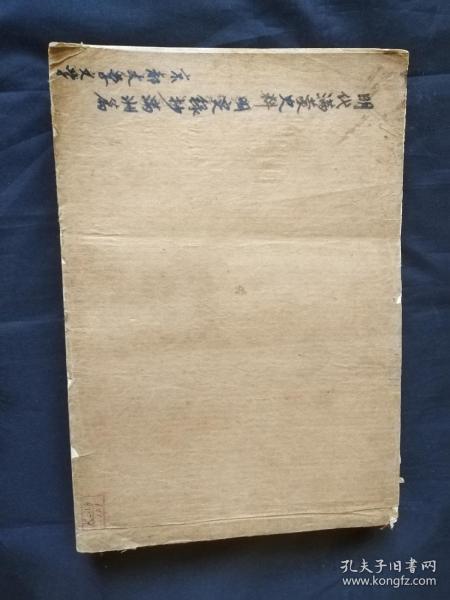 明代满蒙史料 明实录抄 满洲篇
京都大学文学
孔夫子旧书网
www.kongfz.com